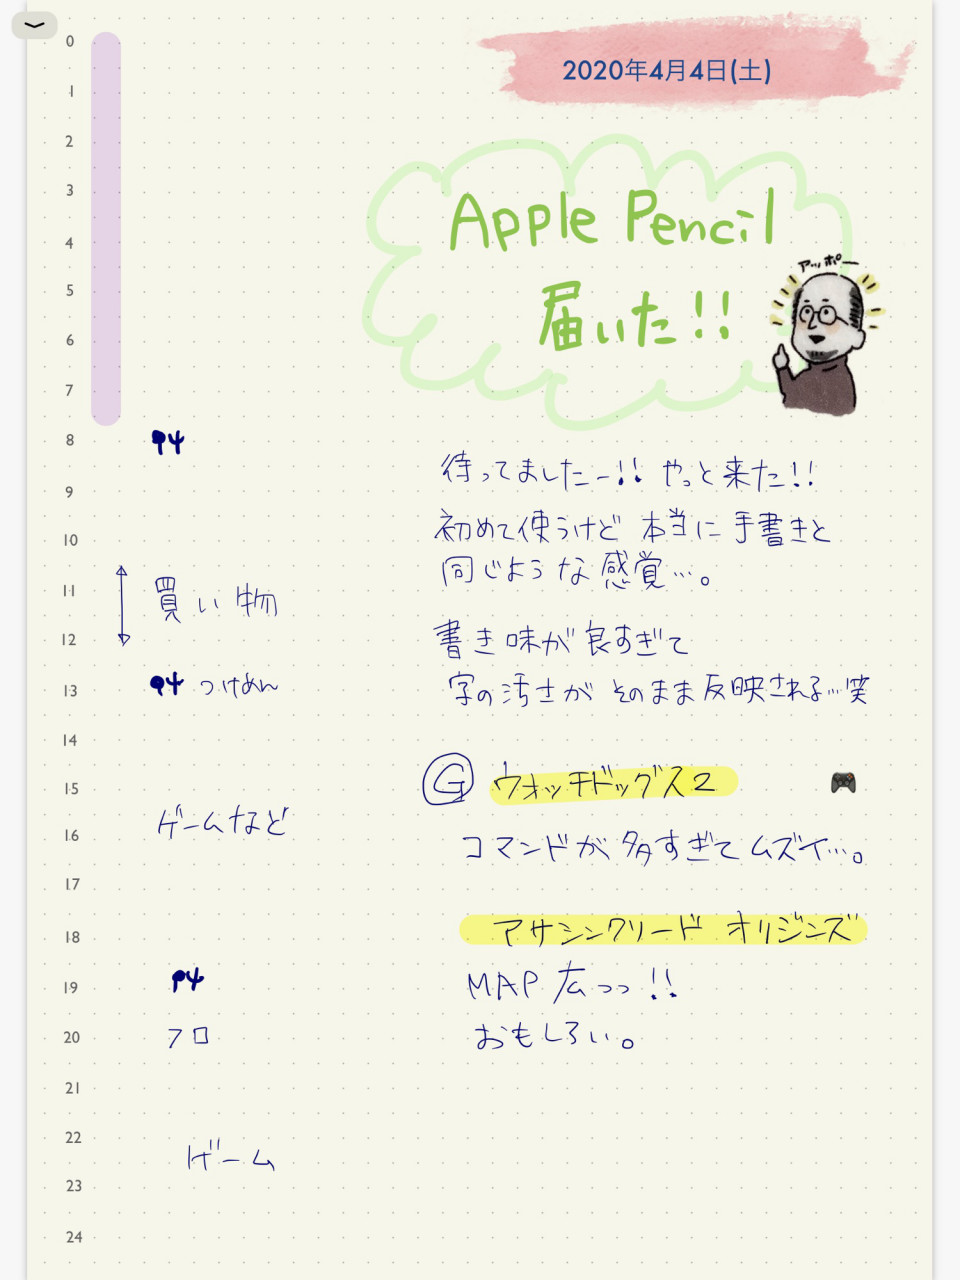 2020年4月4日(土)
Apple Pencil
届いた!!
アッポー
0
1
2
3
4
5
6
7
8
9
10
11
買い物
12
13
つけめん
14
15
16
ゲームなど
17
18
19
20
フロ
21
22
ゲーム
23
24
待ってましたー!! やっと来た!!
初めて使うけど 本当に手書きと
同じような感覚…。
書き味が良すぎて
字の汚さが そのまま反映される…笑
G ウォッチドッグス2
コマンドが多すぎてムズイ…。
アサシンクリード オリジンズ
MAP 広っっ!!
おもしろい。